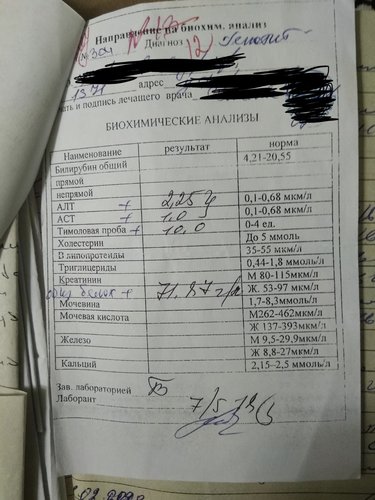 Направление на биохим. анализ
№ 304 Диагноз Гепатит
1971 адрес
и подпись лечащего врача
БИОХИМИЧЕСКИЕ АНАЛИЗЫ
Наименование результат норма
Билирубин общий 4,21-20,55
прямой
непрямой
АЛТ + 2,25 0,1-0,68 мкм/л
АСТ + 1,0 0,1-0,68 мкм/л
Тимоловая проба + 10,0 0-4 ед.
Холестерин До 5 ммоль
В липопротеиды 35-55 мкм/л
Триглицериды 0,44-1,8 ммоль/л
Креатинин М 80-115мкм/л
общ белок + 71,87 г/л Ж. 53-97 мкм/л
Мочевина 1,7-8,3ммоль/л
Мочевая кислота М262-462мкм/л
Ж 137-393мкм/л
Железо М 9,5-29,9мкм/л
Ж 8,8-27мкм/л
Кальций 2,15-2,5 ммоль/л
Зав. лабораторией
Лаборант